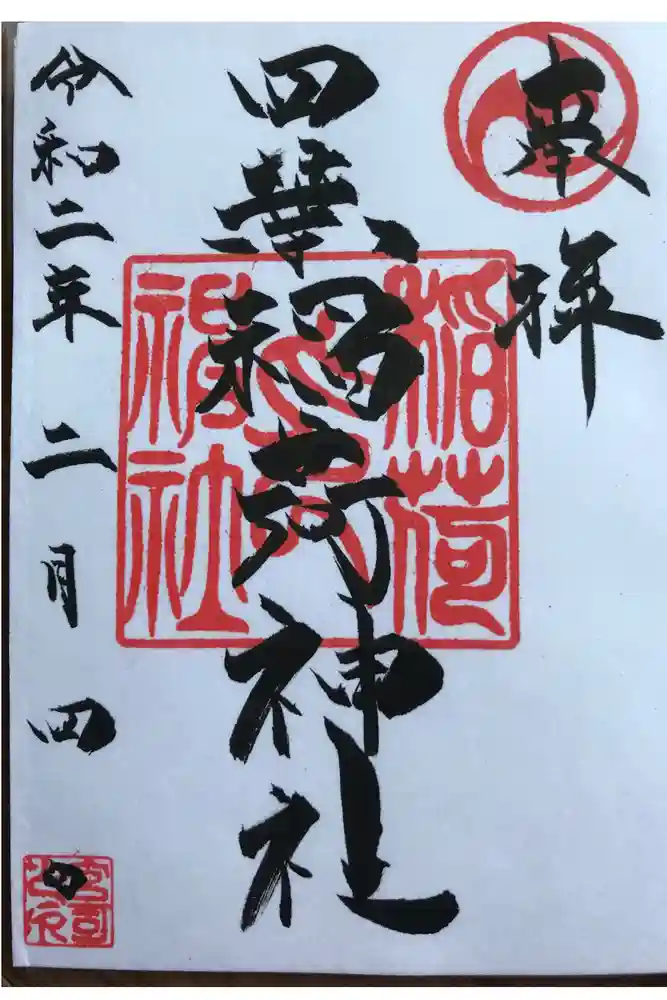 奉拝
四華稲荷神社
令和二年 二月 四日
稲荷
神社
宮司
之印